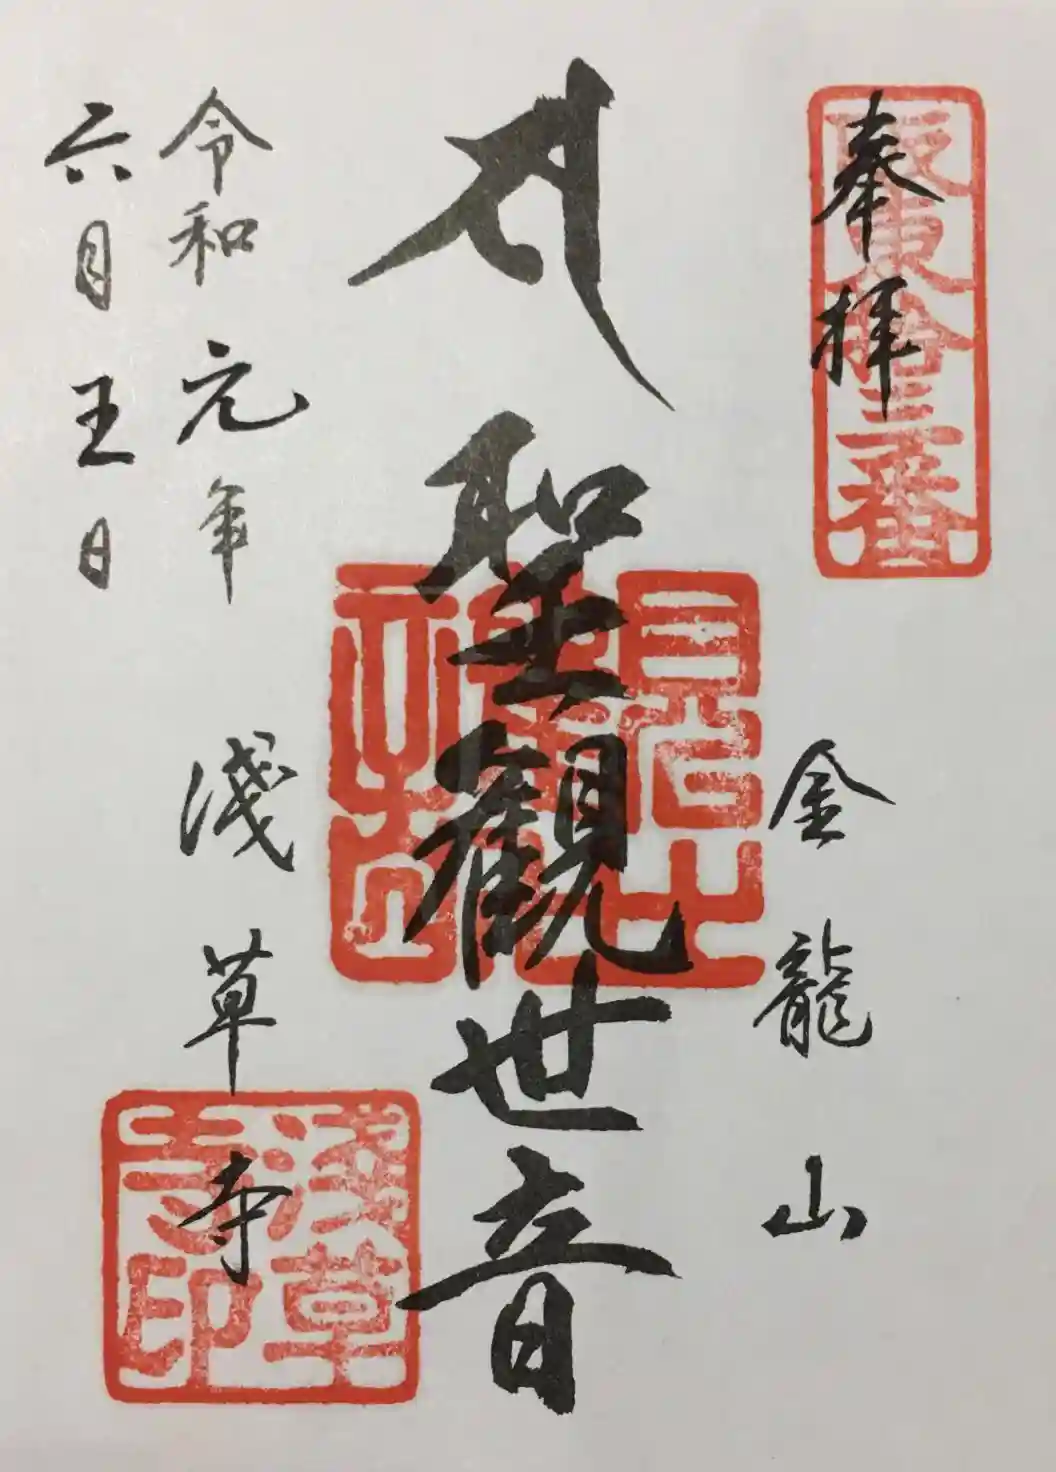 奉拝
坂東拾三番
金龍山
聖観世音
令和元年
六月五日
浅草寺
淺草寺印